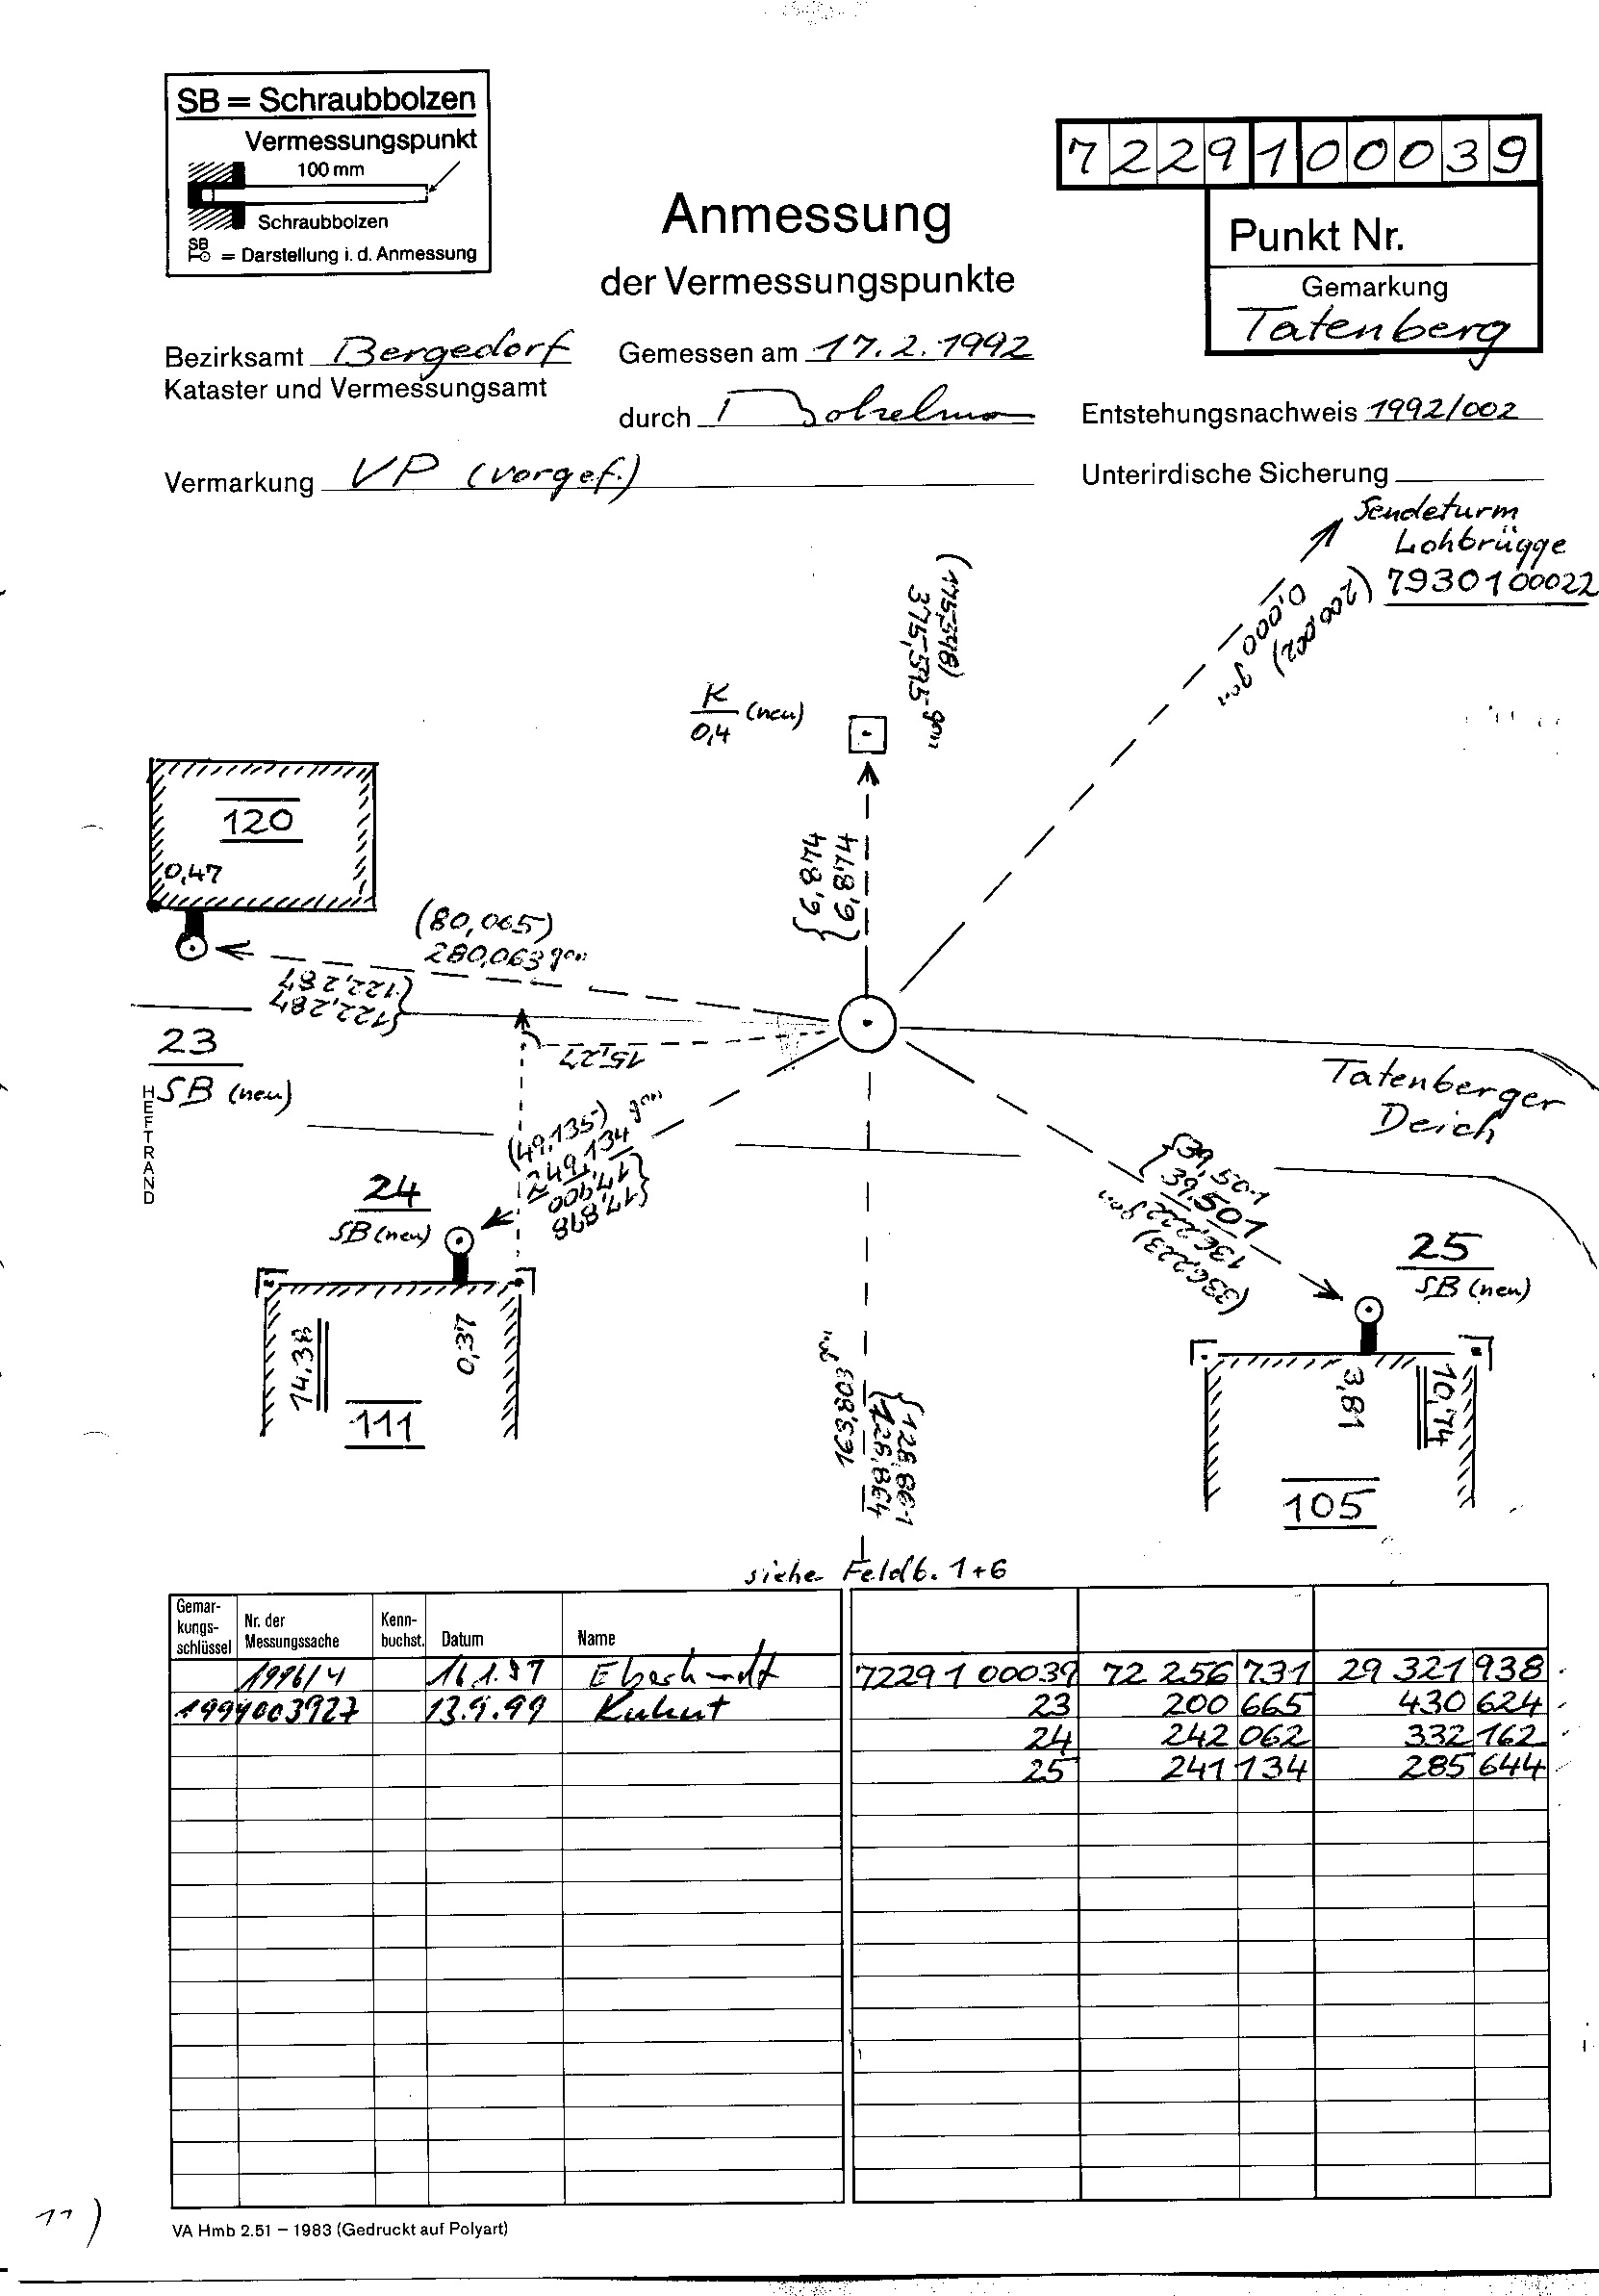 SB = Schraubbolzen
Vermessungspunkt
100 mm
Schraubbolzen
SB = Darstellung i. d. Anmessung
7229100039
Punkt Nr.
Gemarkung
Tatenberg
Anmessung
der Vermessungspunkte
Bezirksamt Bergedorf
Kataster und Vermessungsamt
Gemessen am 17.2.1992
durch
Entstehungsnachweis 1992/002
Vermarkung VP (vorgef.)
Unterirdische Sicherung
Sendeturm
Lohbrügge
7930100022
0,000 gon
(200,002)
(175,548)
375,545 gon
K (neu)
0,4
6,874
6,874
120
0,47
(80,065)
280,063 gon
122,287
122,287
23
SB (neu)
HEFTRAND
15,27
Tatenberger
Deich
(49,135)
249,134 gon
17,900
17,898
24
SB (neu)
14,38
0,37
111
39,501
39,501
136,222 gon
(336,223)
25
SB (neu)
3,81
10,74
105
163,803 gon
128,864
128,861
siehe Feldb. 1+6
Gemar-
kungs-
schlüssel
Nr. der
Messungssache
Kenn-
buchst.
Datum
Name
1996/4 16.1.97 Eberhardt 72291 00039 72 256 731 29 321 938
1994003927 13.9.99 Kuhnt 23 200 665 430 624
24 242 062 332 162
25 241 134 285 644
VA Hmb 2.51 – 1983 (Gedruckt auf Polyart)
11)